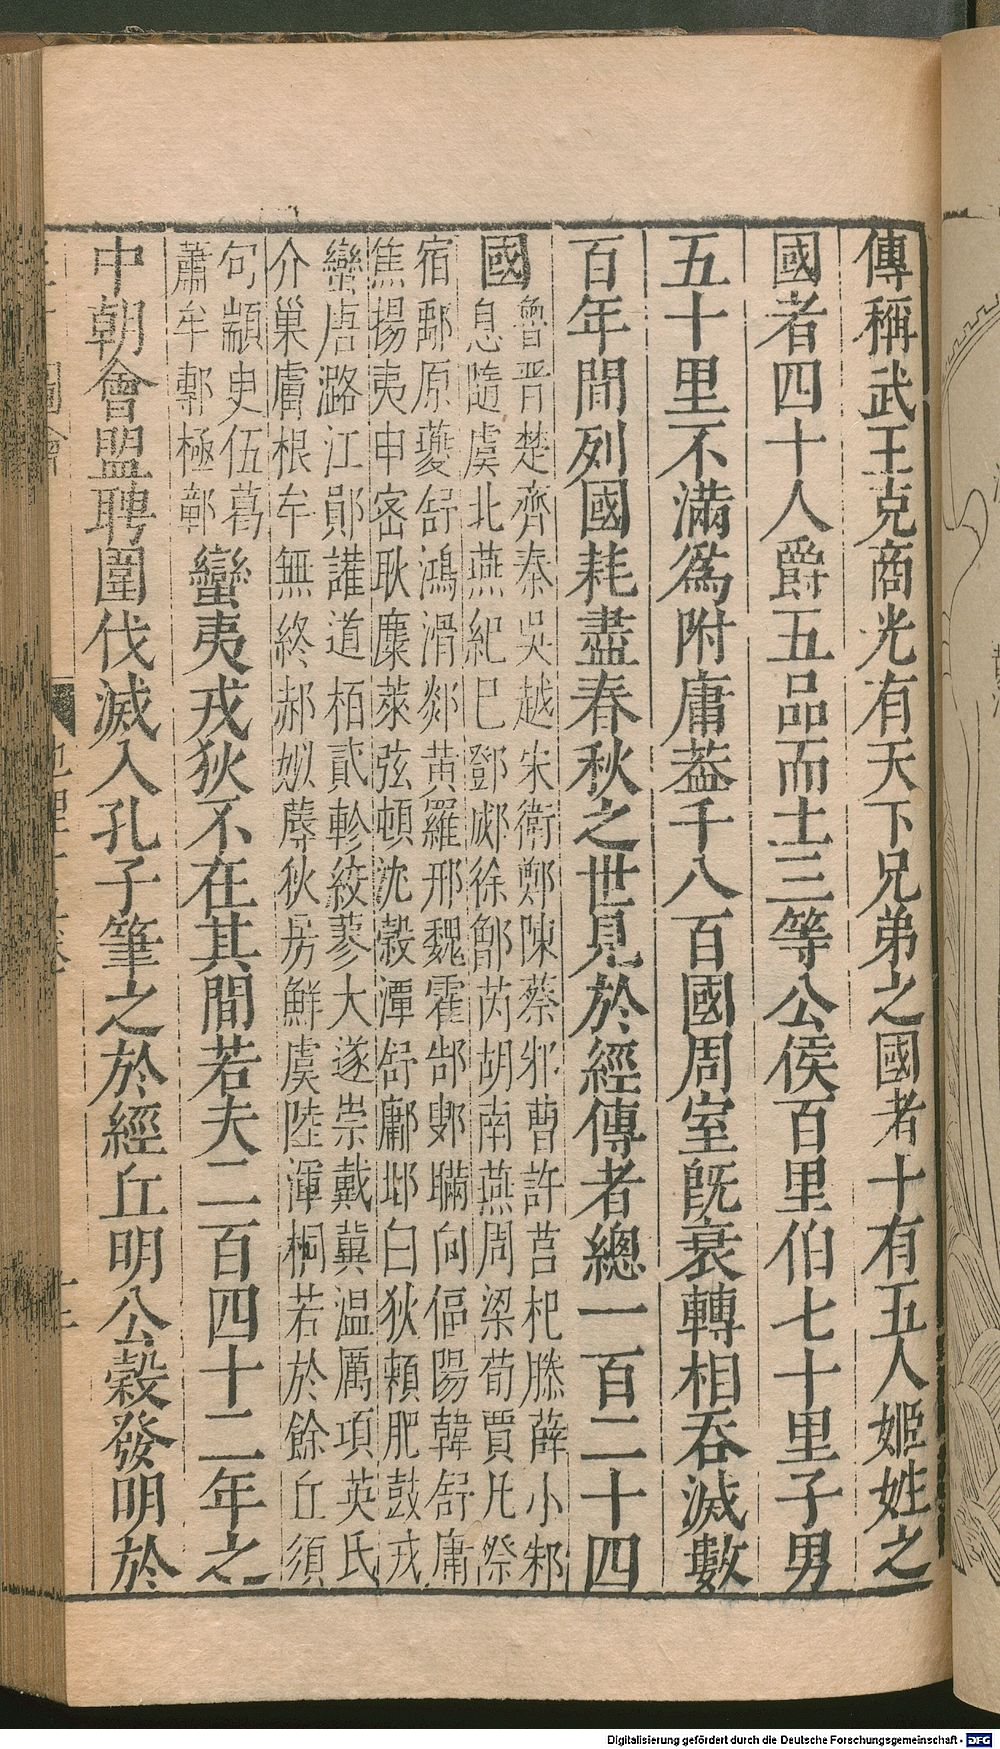 傳稱武王克商光有天下兄弟之國者十有五人姬姓之
國者四十人爵五品而土三等公侯百里伯七十里子男
五十里不滿爲附庸葢千八百國周室旣衰轉相吞滅數
百年間列國耗盡春秋之世見於經傳者總一百二十四
國
魯晋楚齊秦吳越宋衛鄭陳蔡邾曹許莒杞滕薛小邾
息隨虞北燕紀巳鄧郕徐鄫芮胡南燕周梁荀賈凡祭
宿鄅原夔舒鴻滑郯黃羅邢魏霍郜鄓瞞向偪陽韓舒庸
焦揚夷申宻耿麇萊弦頓沈榖潭舒鄘邶白狄賴肥鼓戎
蠻唐潞江鄖讙道栢貳軫絞蓼大遂崇戴冀温厲項英氏
介巢膚根牟無終郝姒蓐狄房鮮虞陸渾桐若於餘丘須
句顓臾伍葛
蕭牟鄟極鄣
蠻夷戎狄不在其間若夫二百四十二年之
中朝會盟聘圍伐滅入孔子筆之於經丘明公榖發明於
地理
Digitalisierung gefördert durch die Deutsche Forschungsgemeinschaft - DFG